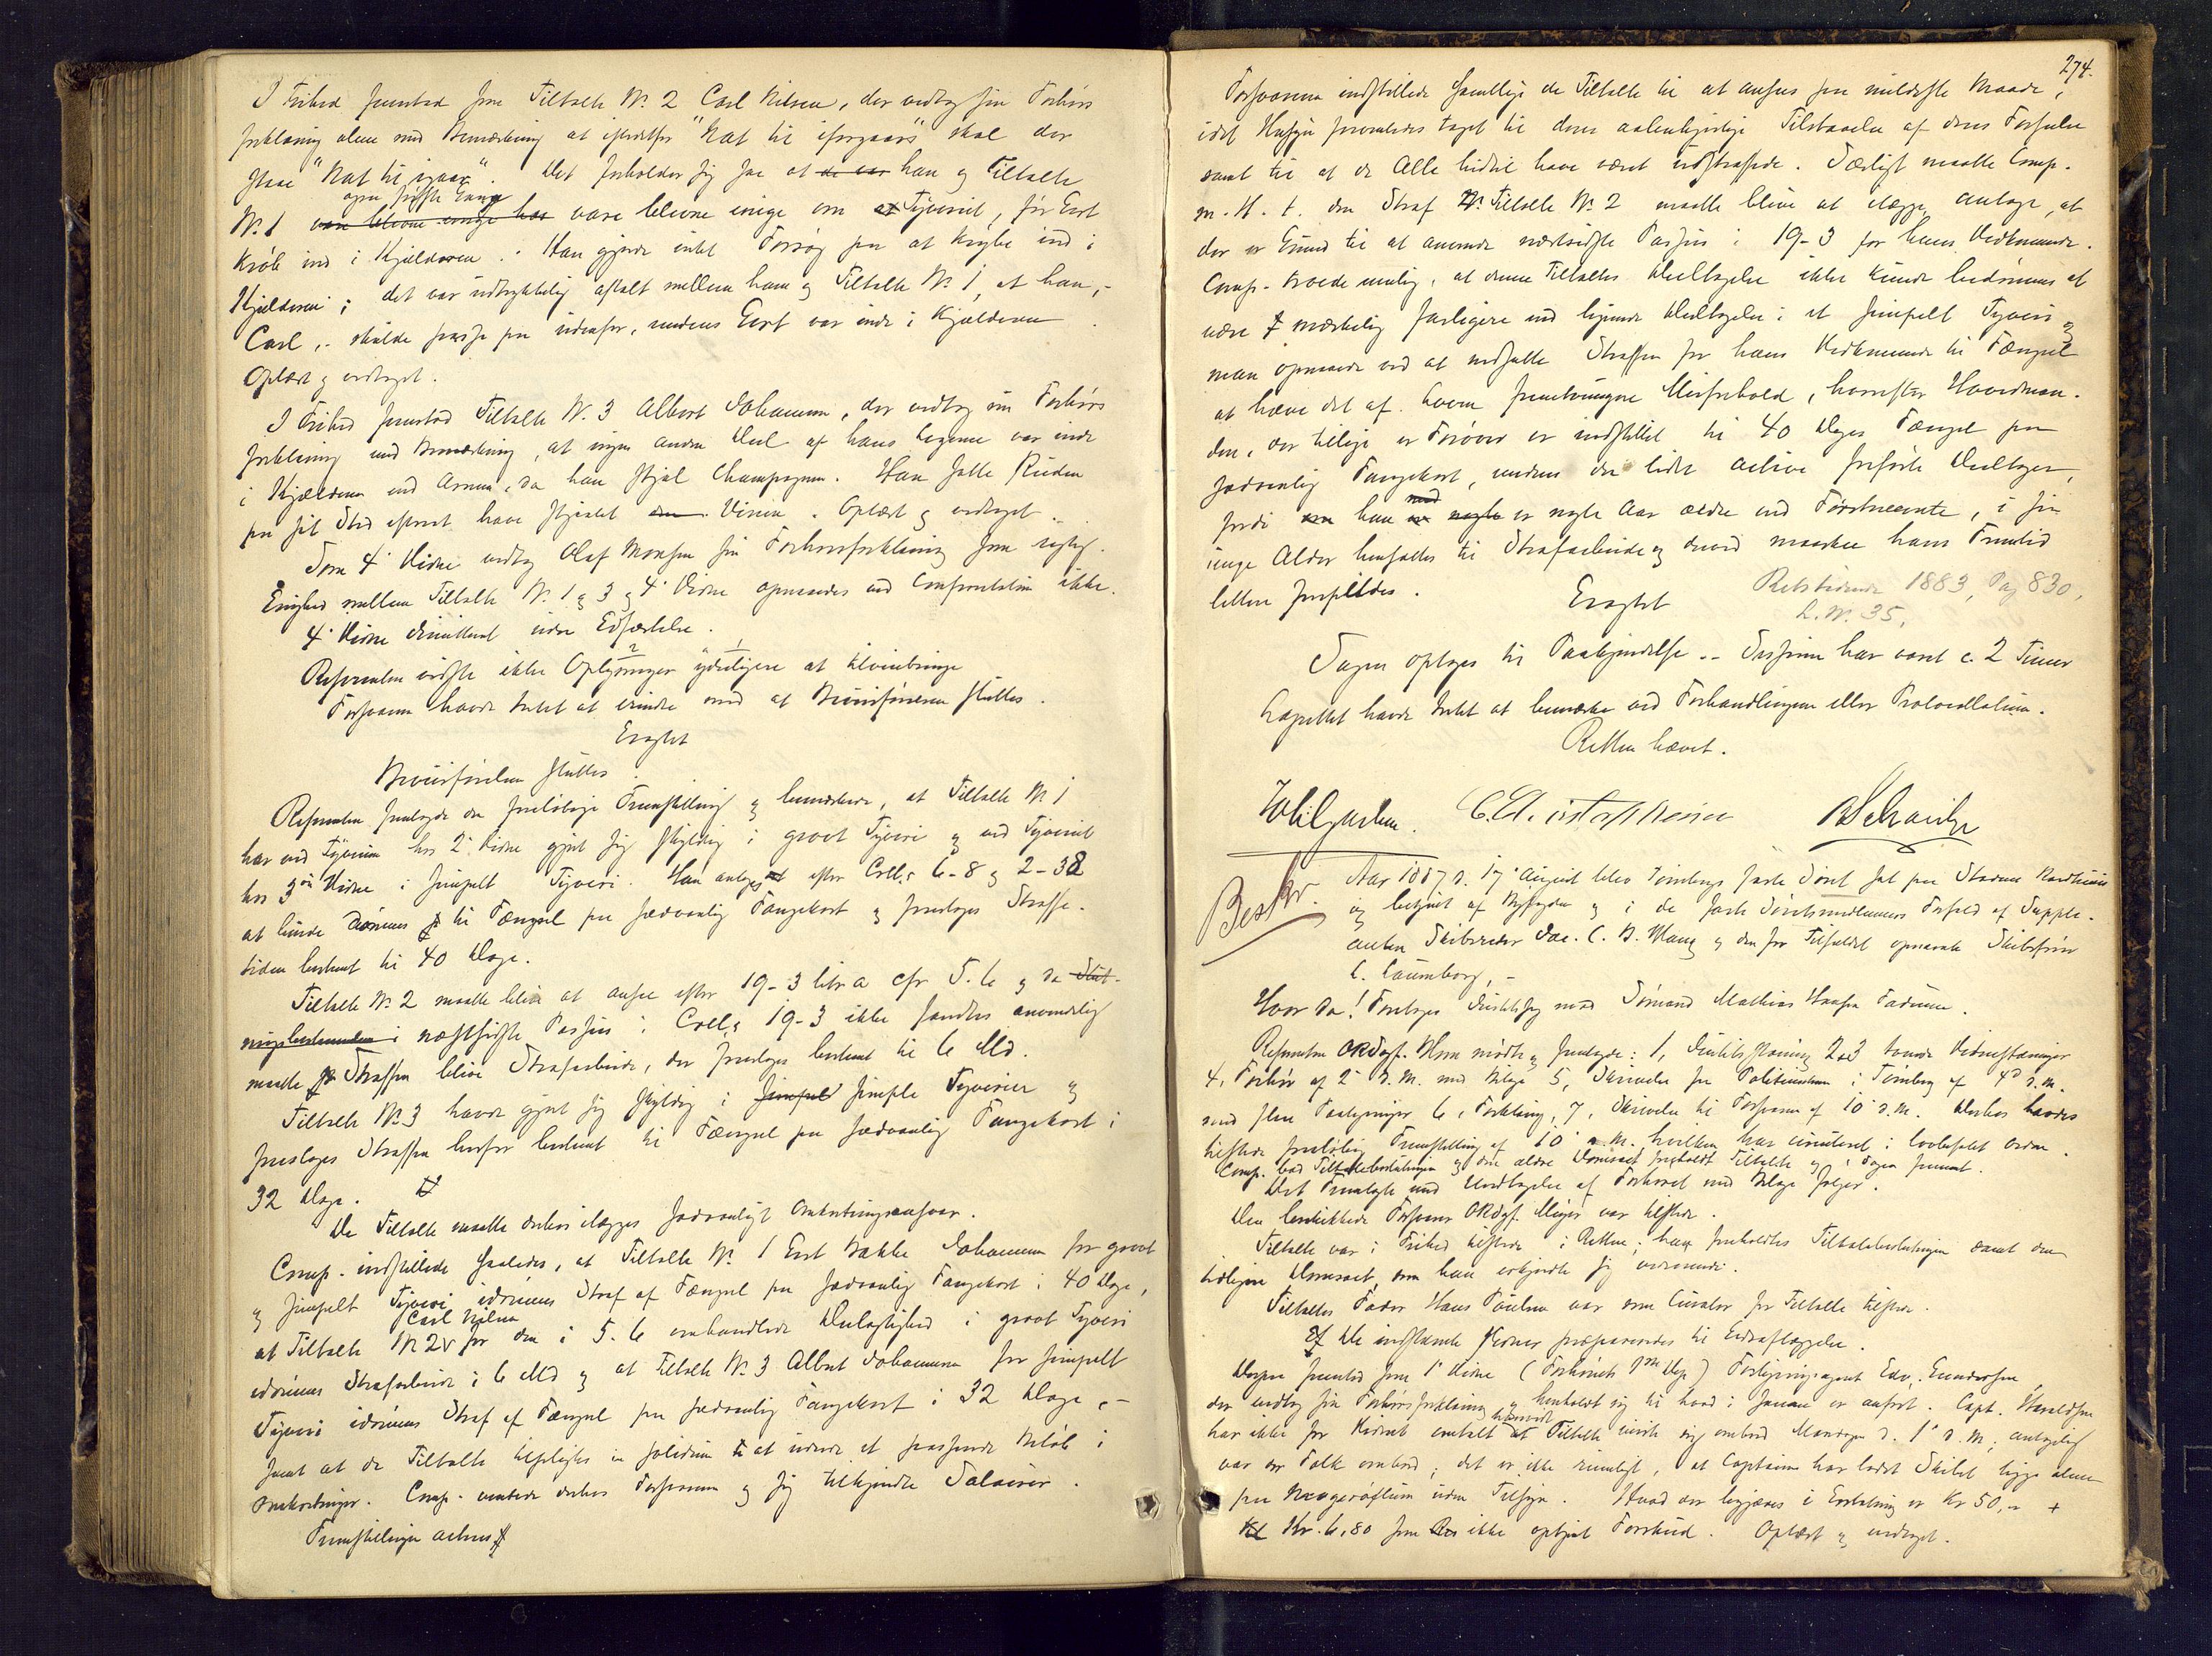 I Frihed fremstod som Tiltalte No. 2 Carl Nilsen, der vedtog sin Forhørs
forklaring alene med Bemærkning at istedetfor "Nat til iforgaars" skal der
staae "Nat til igaar". Det forholder sig saa at de var han og Tiltalte
ogsaa sidste Gang
No. 1 vare blevne enige har vare blevne enige om et Tyveriet, før Emt
krøb ind i Kjælderen. Han gjorde intet Forsøg paa at krybe ind i
Kjælderen; det var udtrykkelig aftalt mellem ham og Tiltalte No. 1, at han,-
Carl,- skulde passe paa udenfor, medens var inde i Kjælderen.
Oplæst og vedtaget.
I Frihed fremstod Tiltalte No. 3 Albert Johannesen, der vedtog sin Forhørs
forklaring med Bemærkning, at ingen anden Deel af hans Legeme var inde
i Kjælderen end Armen, da han stjal Champagnen. Han satte Ruden
paa sit Sted efterat have stjaalet den Vinen. Oplæst og vedtaget.
Som 4' Vidne vedtog Olaf Monsen sin Forhørsforklaring som rigtig.
Enighed mellem Tiltalte No. 1 og 3 og 4' Vidne opnaaedes ved Confrontation ikke.
4' Vidne dimitteret uden Edfæstelse.
Referenten vidste ikke Oplysninger yderligere at tilveiebringe
Forsvareren havde Intet at erindre mod at Beviisførelsen sluttes.
Eragtet
Beviisførelsen sluttes.
Referenten fremlagde den foreløbige Fremstilling og bemærkede, at Tiltalte No 1
har ved Tyveriet hos 2' Vidne gjort sig skyldig i grovt Tyveri og ved Tyveriet
hos 3die Vidne i simpelt Tyveri. Han antages at efter Crll.s 6-8 og 2-38
at burde dømmes til Fængsel paa sædvanlig Fangekost og foreslaaes Straffe-
tiden bestemt til 40 Dage.
Tiltalte No. 2 maatte blive at ansee efter 19-3 litr a cfr 5. 6 og da Slut-
ningsbestemmelsen i næstsidste Passus i Crll.s 19-3 ikke fandtes anvendelig
maatte Straffen blive Strafarbeide, der foreslaaes bestemt til 6 Md.
Tiltalte No. 3 havde gjort sig skyldig i simpel simple Tyverier og
foreslaaes Straffen herfor bestemt til Fængsel paa sædvanlig Fangekost i
32 Dage.
De Tiltalte maatte derhos ilægges sædvanligt Omkostningsansvar.
Comp. indstillede saaledes, at Tiltalte No. 1 Bakke Johannesen for grovt
og simpelt Tyveri idømmes Straf af Fængsel paa sædvanlig Fangekost i 40 Dage,
Carl Nilsen
at Tiltalte No 2 for den i 5. 6 omhandlede Delagtighed i grovt Tyveri
idømmes Strafarbeide i 6 Md og at Tiltalte No. 3 Albert Johannesen for simpelt
Tyveri idømmes Straf af Fængsel paa sædvanlig Fangekost i 32 Dage,-
samt at de Tiltalte tilpligtes in solidum at udrede et passende Beløb i
Omkostninger. Comp. ventede derhos Forsvareren og sig tilkjendte Salairer.
Fremstillingen acteres

274.
Forsvareren indstillede samtlige de Tiltalte til at ansees paa mildeste Maade,
idet Hensyn formentes taget til deres aabenhjertige Tilstaaelse af deres Forseelse
samt til at de Alle hidtil have været ustraffede. Særligt maatte Comp.
m. H. t. den Straf Tiltalte No. 2 maatte blive at ilægge, antage, at
der er Grund til at anvende næstsidste Passus i 19-3 for hans Vedkommende.
Comp. troede nemlig, at denne Tiltaltes Deeltagelse ikke kunde bedømmes at
være mærkelig farligere end lignende Deeltagelse i et simpelt Tyveri og
man opnaaede ved at nedsætte Straffen for hans Vedkommende til Fængsel
at hæve det af Loven fremtvungne Misforhold, hvorefter Hovedman-
den, der tillige er Prøver er indstillet til 40 Dages Fængsel paa
sædvanlig Fangekost, medens den lidet active førførte Deeltager,
fordi om han er nogle er nogle Aar ældre end Førstnævnte, i sin
unge Alder hensættes til Strafarbeide og derved maaskee hans Fremtid
lettere forspildes.
Retstidende 1883, Pag 830,
L. No. 35.
Eragtet
Sagen optages til Paakjendelse.- Sessionen har varet c. 2 Timer
Laugrettet havde Intet at bemærke ved Forhandlingen eller Protocollationen.
Retten hævet.
C. Christophersen
Beskr.
Aar 1887 d. 17' August blev Tønsbergs faste Søret sat paa Stadens Raadhuus
og betjent af Byfogden og i de faste Søretsmedlemmers Forfald af Supple-
anten Skibsreder Jac. C. B. Wang og den for Tilfældet opnævnte Skibsfører
C. Caumborg,-
Hvor da! Foretoges Justitssag mod Sømand Mathias Hansen
Referenten ORSagf. Horn mødte og fremlagde: 1, Justitsstævning 2 og 3 tvende Vidnestævninger
4, Forhør af 2' d.M. med Bilage 5, Skrivelse fra Politimesteren i Tønsberg af 4de d.M.
med flere Paategninger 6, Forklaring, 7, Skrivelse til Forsvaren af 10' d.M. Derhos havdes
tilstede foreløbig Fremstilling af 10' d.M. hvilken har circuleret i lovbefalet Orden.
Comp. bad Tiltalebeslutningen og den ældre Domsact foreholdt Tiltalte og Sagen fremmet.
Det Fremlagte med Undtagelse af Forhøret med Bilage følger.
Den beskikkede Forsvarer ORSagf. Meyer var tilstede.
Tiltalte var i Frihed tilstede i Retten; ham foreholdtes Tiltalebeslutningen samt den
tidligere Domsact, som han erkjendte sig vedkommende.
Tiltaltes Fader Hans Paulsen var som Curator for Tiltalte tilstede.
De indstævnte Vidner præpareredes til Edsaflæggelse.
Derpaa fremstod som 1' Vidne (Forhørets 1ste Dep.) Forhyringsagent Edv. Gundersen
der vedtog sin Forhørsforklaring og henholdt sig til hvad i Samme er anført. Capt. Haraldsen
har ikke for Vidnet omtalt at Tiltalte mødte sig ombord Mandagen d. 1' d.M., antagelig
var der Folk ombord; det er ikke rimeligt, at Capitainen har ladet Skibet ligge alene
paa uden Tilsyn. Hvad der begjæres i Erstatning er Kr 50,- +
Kr. 6,80 som ikke optjent Forskud. Oplæst og vedtaget.